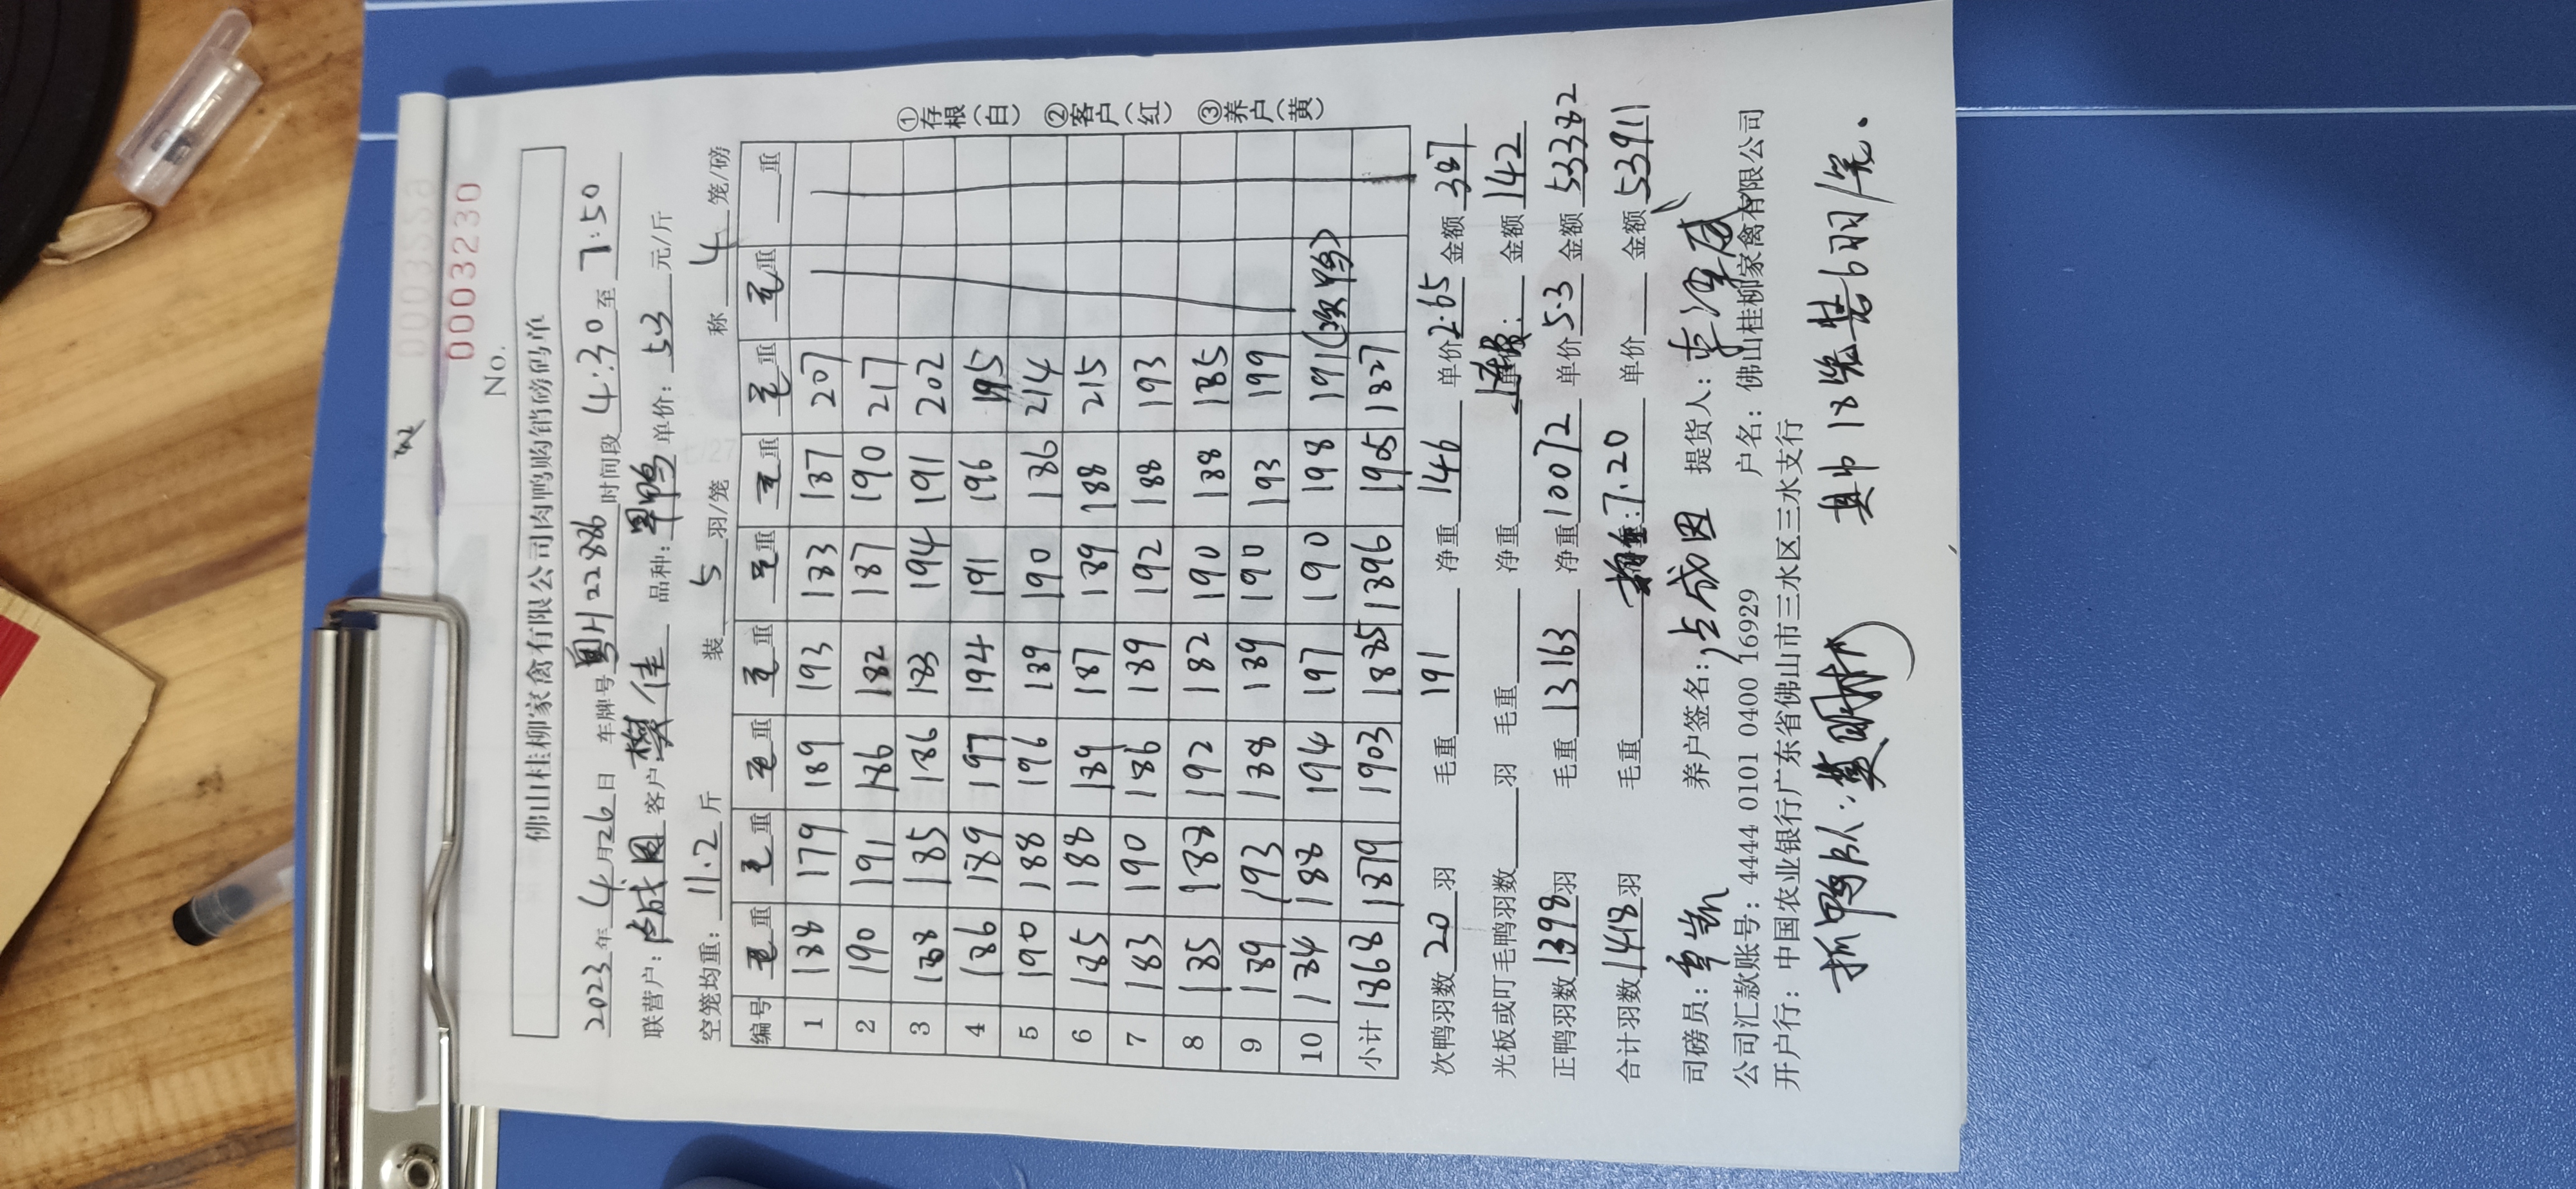 No. 0003230
佛山桂柳家禽有限公司肉鸭购销磅码单
2023年4月26日 车牌号粤H22886 时间段4:30至7:50
联营户：卢成因 客户樊佳 品种：旱鸭 单价：5.3元/斤
空笼均重：11.2斤 装5羽/笼 称4笼/磅
编号 毛重 毛重 毛重 毛重 毛重 毛重 毛重 毛重 重
1 188 179 189 193 183 187 207
2 190 191 186 182 187 190 217
3 188 185 186 183 194 191 202
4 186 189 197 194 191 196 195
5 190 188 196 189 190 186 214
6 185 188 189 187 189 188 215
7 183 190 186 189 192 188 193
8 185 188 192 182 190 188 185
9 189 193 188 189 190 193 199
10 184 188 194 197 190 198 191(次鸭)
小计 1868 1879 1903 1885 1896 1905 1827
①存根(白) ②客户(红) ③养户(黄)
次鸭羽数20羽 毛重191 净重146 单价2.65 金额387
光板或叮毛鸭羽数 羽 毛重 净重 金额142
正鸭羽数1398羽 毛重13163 净重10072 单价5.3 金额53382
合计羽数1418羽 毛重 :7.20 单价 金额53911
司磅员： 养户签名：卢成因 提货人：李泽威
公司汇款账号：4444 0101 0400 16929 户名：佛山桂柳家禽有限公司
开户行：中国农业银行广东省佛山市三水区三水支行
抓鸭队： 其中18笼装6羽/笼.